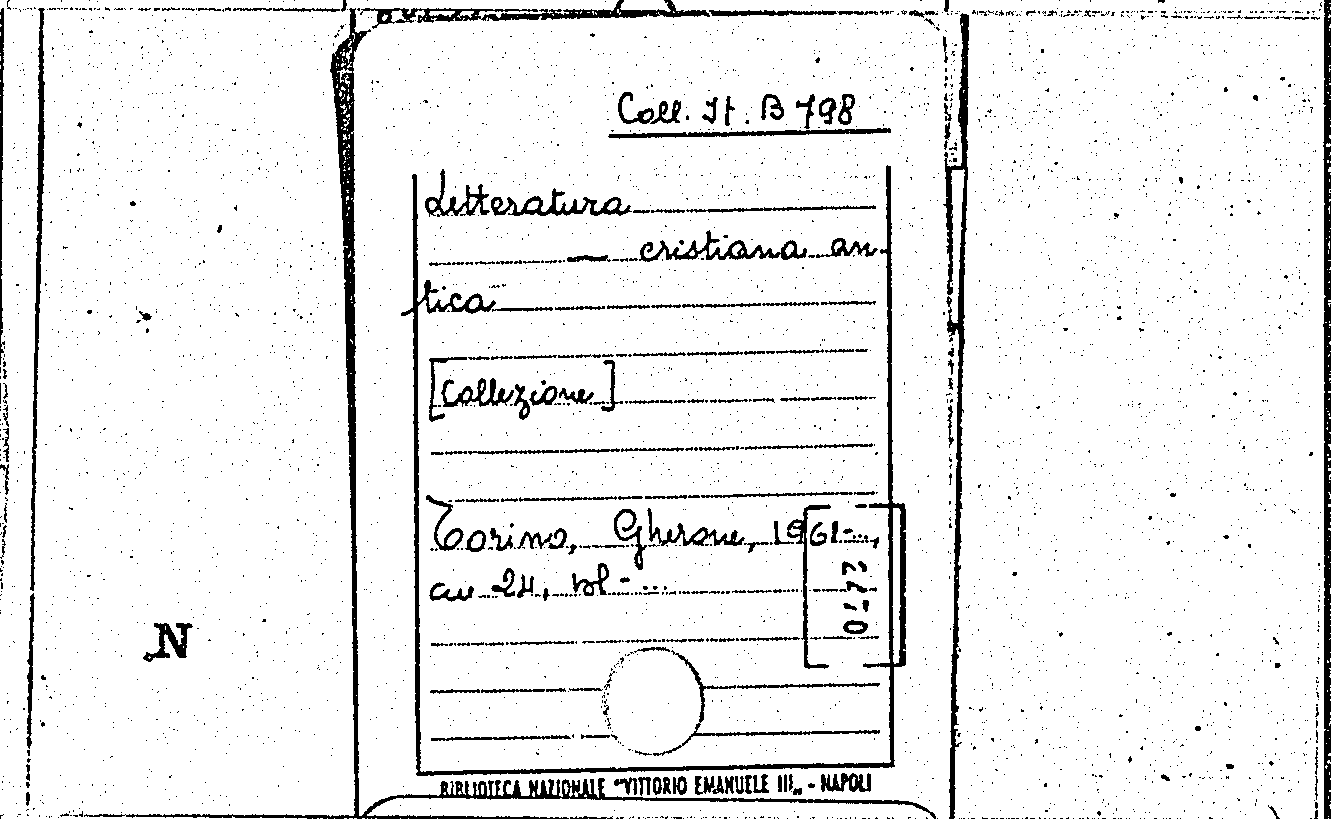 Coll. It. B 798
Letteratura
— cristiana an-
tica
[Collezione]
Torino, Gherone, 1961-...,
cm 24, vol - ...
0-77
N
BIBLIOTECA NAZIONALE "VITTORIO EMANUELE III„ - NAPOLI